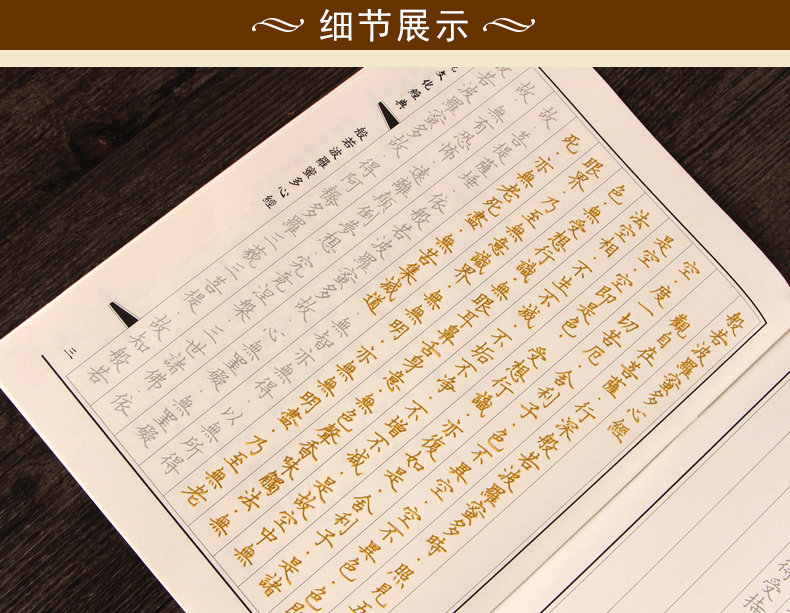 细节展示
般若波羅蜜多心經
觀自在菩薩·行深般若波羅蜜多時·照見五
空·度一切苦厄·舍利子·色不異空·空不異色·色
是空·空即是色·受想行識·亦復如是·舍利子·是諸
法空相·不生不滅·不垢不淨·不增不減·是故空中無
色·無受想行識·無眼耳鼻舌身意·無色聲香味觸法·無
眼界·乃至無意識界·無無明·亦無無明盡·乃至無老
死·亦無老死盡·無苦集滅道·無智亦無得·以無所得
故·菩提薩埵·依般若波羅蜜多故·心無罣礙·無罣礙
故·無有恐怖·遠離顛倒夢想·究竟涅槃·三世諸佛·依
般若波羅蜜多故·得阿耨多羅三藐三菩提·故知般若
文化經典
般若波羅蜜多心經
三
得
受持